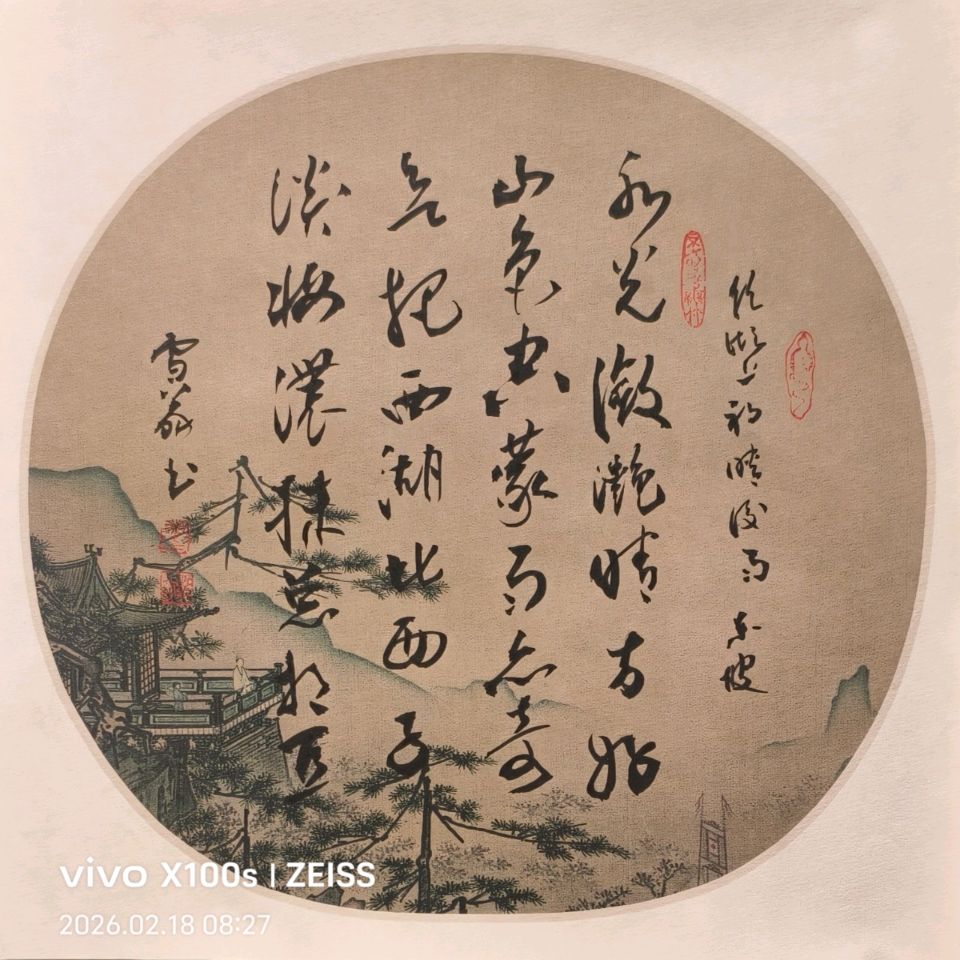 饮湖上初晴後雨 东坡
水光潋滟晴方好
山色空蒙雨亦奇
欲把西湖比西子
淡妆濃抹总相宜
雪 书
vivo X100s | ZEISS
2026.02.18 08:27